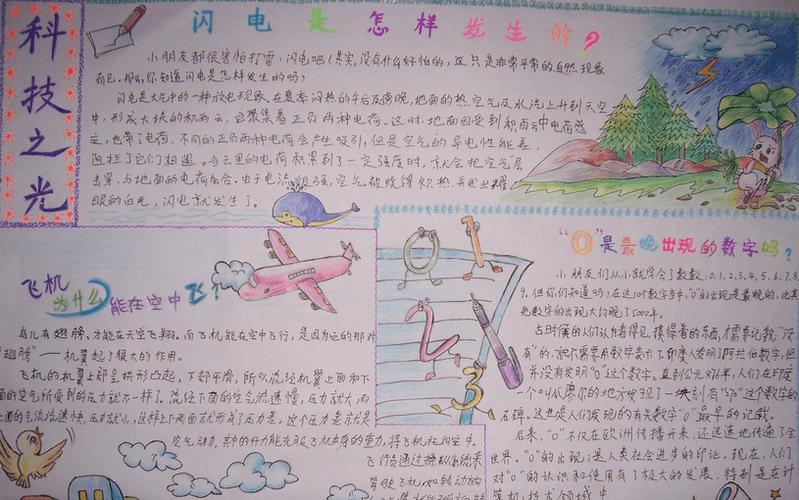 科技之光
闪电是怎样发生的?
小朋友都很害怕打雷、闪电吧(其实,没有什么好怕的,这只是非常平常的自然现象
而已。那么,你知道闪电是怎样发生的吗?
闪电是大气中的一种放电现象。在夏季闷热的午后及傍晚,地面的热空气及水汽上升到天空
中,形成大块的积雨云,云聚集着正负两种电荷。这时,地面因受到积雨云中电荷感
应,也带了电荷,不同的正负两种电荷会产生吸引,但是空气的导电性能差,
阻拦了它们相遇。当云里的电荷积累到了一定强度时,就会把空气层
击穿,与地面的电荷会合。由于电流很强,空气被烧得炽热,并发出耀
眼的白光,闪电就发生了。
飞机为什么能在空中飞?
鸟儿有翅膀,才能在天空飞翔。而飞机能在空中飞行,是因为它的那对
"翅膀"——机翼起了很大的作用。
飞机的机翼上部呈拱形凸起,下部平滑,所以流经机翼上面和下
面的空气所受到的压力就不一样了。流经下面的空气流速慢,压力就大,而
上面的气流流速快,压力就小,这样上下两面就形成了压差。这个压差就是
空气动力,它的升力能克服飞机自身的重力,将飞机托向空中。
飞行员通过操纵系统来
驾驶飞机,如转动
"0"是最晚出现的数字吗?
小朋友们从小就学会了数数,0、1、2、3、4、5、6、7、8、
9。但你们知道吗?在这10个数字当中,"0"的出现是最晚的,比其
他数字的出现大约晚了5000年。
古时候的人们认为看得见、摸得着的东西,才需要记数,"没
有"的,就不需要用数字表示了。印度人发明了阿拉伯数字,但
并没有发明"0"这个数字。直到公元876年,人们在印度
一个叫瓜廖尔的地方发现了一块刻有"270"这个数字的
石碑。这也是人们发现的有关数字"0"最早的记载。
后来,"0"不仅在欧洲传播开来,还迅速地传遍了全
世界。"0"的出现,是人类社会进步的印记。现在,人们
对"0"的认识和使用有了极大的发展,特别是在计
算机技术领域中
0
1
2
3